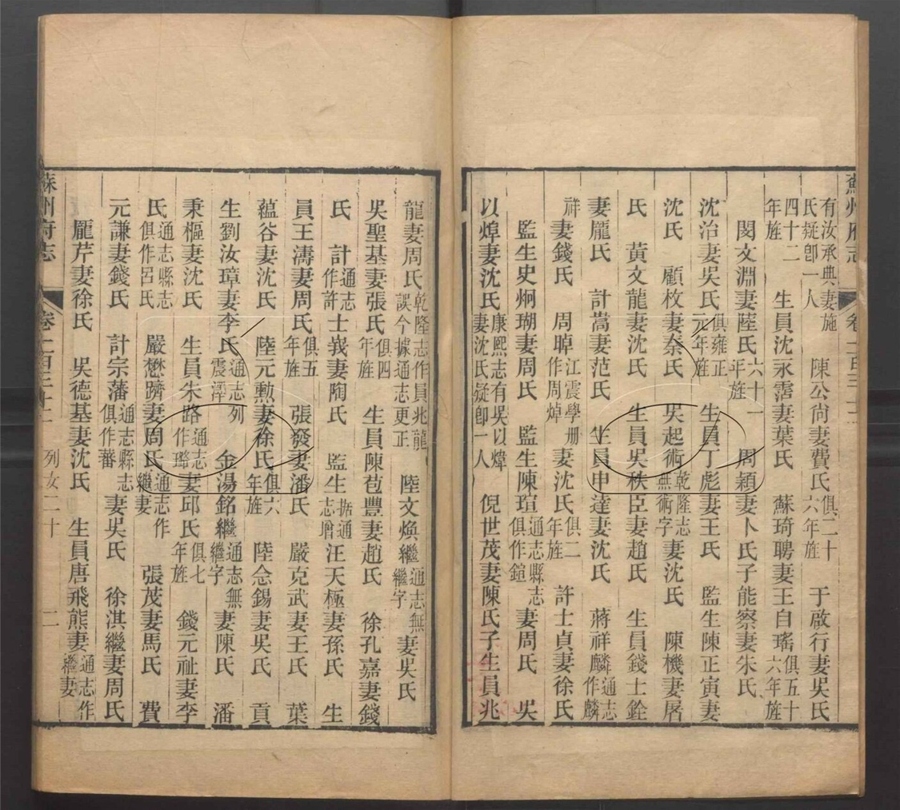 有汝承典妻施氏疑卽一人 陳公尚妻費氏俱二十六年旌 于啟行妻吳氏
四十二年旌 生員沈永𩃎妻葉氏 蘇琦聘妻王自瑤俱五十六年旌
閔文淵妻薩氏六十一年旌 周穎妻卜氏子能察妻朱氏
沈治妻吳氏俱雍正元年旌 生員丁彪妻王氏 監生陳正寅妻
沈氏 顧枚妻秦氏 吳起術乾隆志無術字妻沈氏 陳機妻屠
氏 黃文龍妻沈氏 生員吳秩臣妻趙氏 生員錢士銓
妻龐氏 計嵩妻范氏 生員申達妻沈氏 蔣祥麟通志作麟
祥妻錢氏 周晫江震學冊作周焯妻沈氏俱二年旌 許士貞妻徐氏
監生史炯瑚妻周氏 監生陳瑄通志縣志俱作鎧妻周氏 吳
以焯妻沈氏康熙志有吳以煒妻沈氏疑卽一人 倪世茂妻陳氏子生員兆
龍妻周氏乾隆志作員兆龍誤今據通志更正 陸文煥繼通志無繼字妻吳氏
吳聖基妻張氏俱四年旌 生員陳苞豐妻趙氏 徐孔嘉妻錢
氏 計通志作許士義妻陶氏 監生通志增汪天極妻孫氏 生
員王濤妻周氏俱五年旌 張發妻潘氏 嚴克武妻王氏 葉
蘊谷妻沈氏 陸元勲妻徐氏俱六年旌 陸念錫妻吳氏 貢
生劉汝璋妻李氏通志列震澤 金湯銘繼通志無繼字妻陳氏 潘
秉樞妻沈氏 生員朱路通志作璐妻邱氏俱七年旌 錢元祉妻李
氏通志縣志俱作呂氏 嚴懋躋妻周氏通志作繼妻 張茂妻馬氏 費
元謙妻錢氏 計宗藩通志縣志俱作蕃妻吳氏 徐淇繼妻周氏
龐芹妻徐氏 吳德基妻沈氏 生員唐飛熊妻通志作繼妻
蘇州府志 列女二十 二